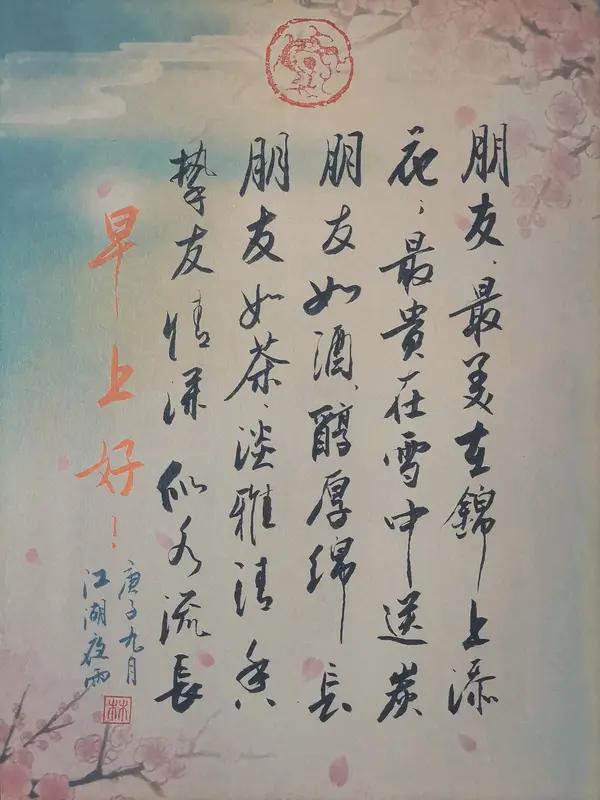 朋友,最美在錦上添
花;最貴在雪中送炭
朋友如酒,醇厚绵长
朋友如茶,淡雅清香
挚友情深似水流长
早上好!
庚子九月
江湖夜雨
林